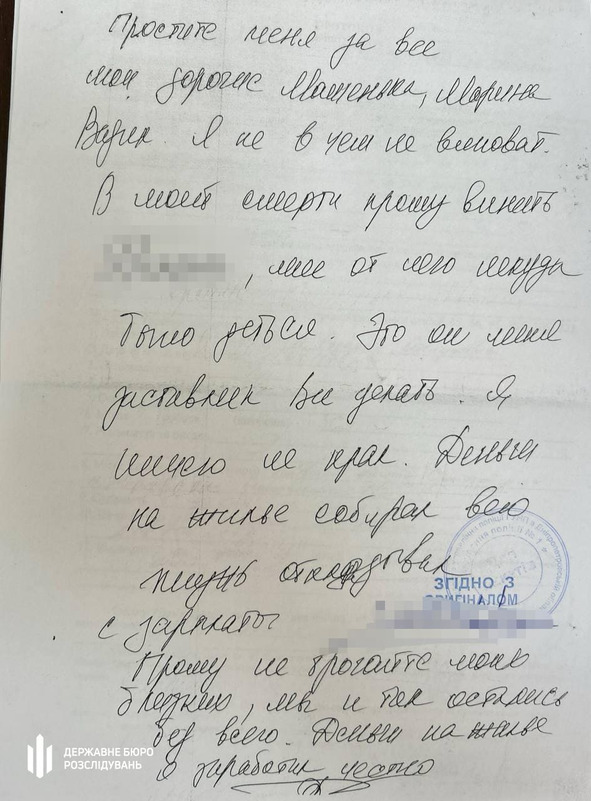 Простите меня за все
мои дорогие Машенька, Марина
Вадик. Я не в чем не виноват.
В моей смерти прошу винить
, мне от него некуда
было деться. Это он меня
заставлял все делать. Я
ничего не крал. Деньги
на жилье собирал всю
жизнь откладывал
с зарплаты
ЗГІДНО З
ОРИГІНАЛОМ
Прошу не трогайте моих
близких, мы и так остались
без всего. Деньги на жилье
я заработал честно
ДЕРЖАВНЕ БЮРО
РОЗСЛІДУВАНЬ